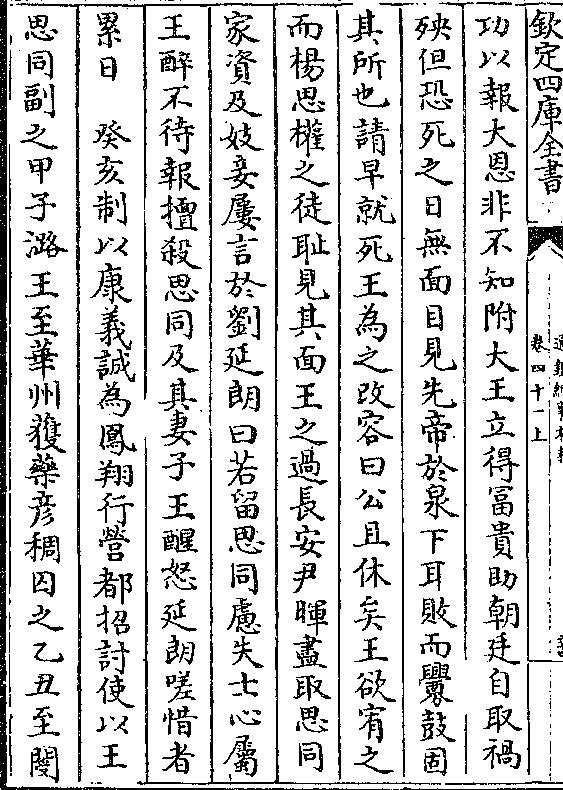 欽定四庫全書
通鑑紀事本末
卷四十一上
功以報大恩非不知附大王立得富貴助朝廷自取禍
殃但恐死之日無面目見先帝於泉下耳敗而釁鼓固
其所也請早就死王為之改容曰公且休矣王欲宥之
而楊思權之徒恥見其面王之過長安尹暉盡取思同
家資及妓妾屢言於劉延朗曰若留思同慮失士心屬
王醉不待報擅殺思同及其妻子王醒怒延朗嗟惜者
累日　癸亥制以康義誠為鳳翔行營都招討使以王
思同副之甲子潞王至華州獲藥彥稠囚之乙丑至閿